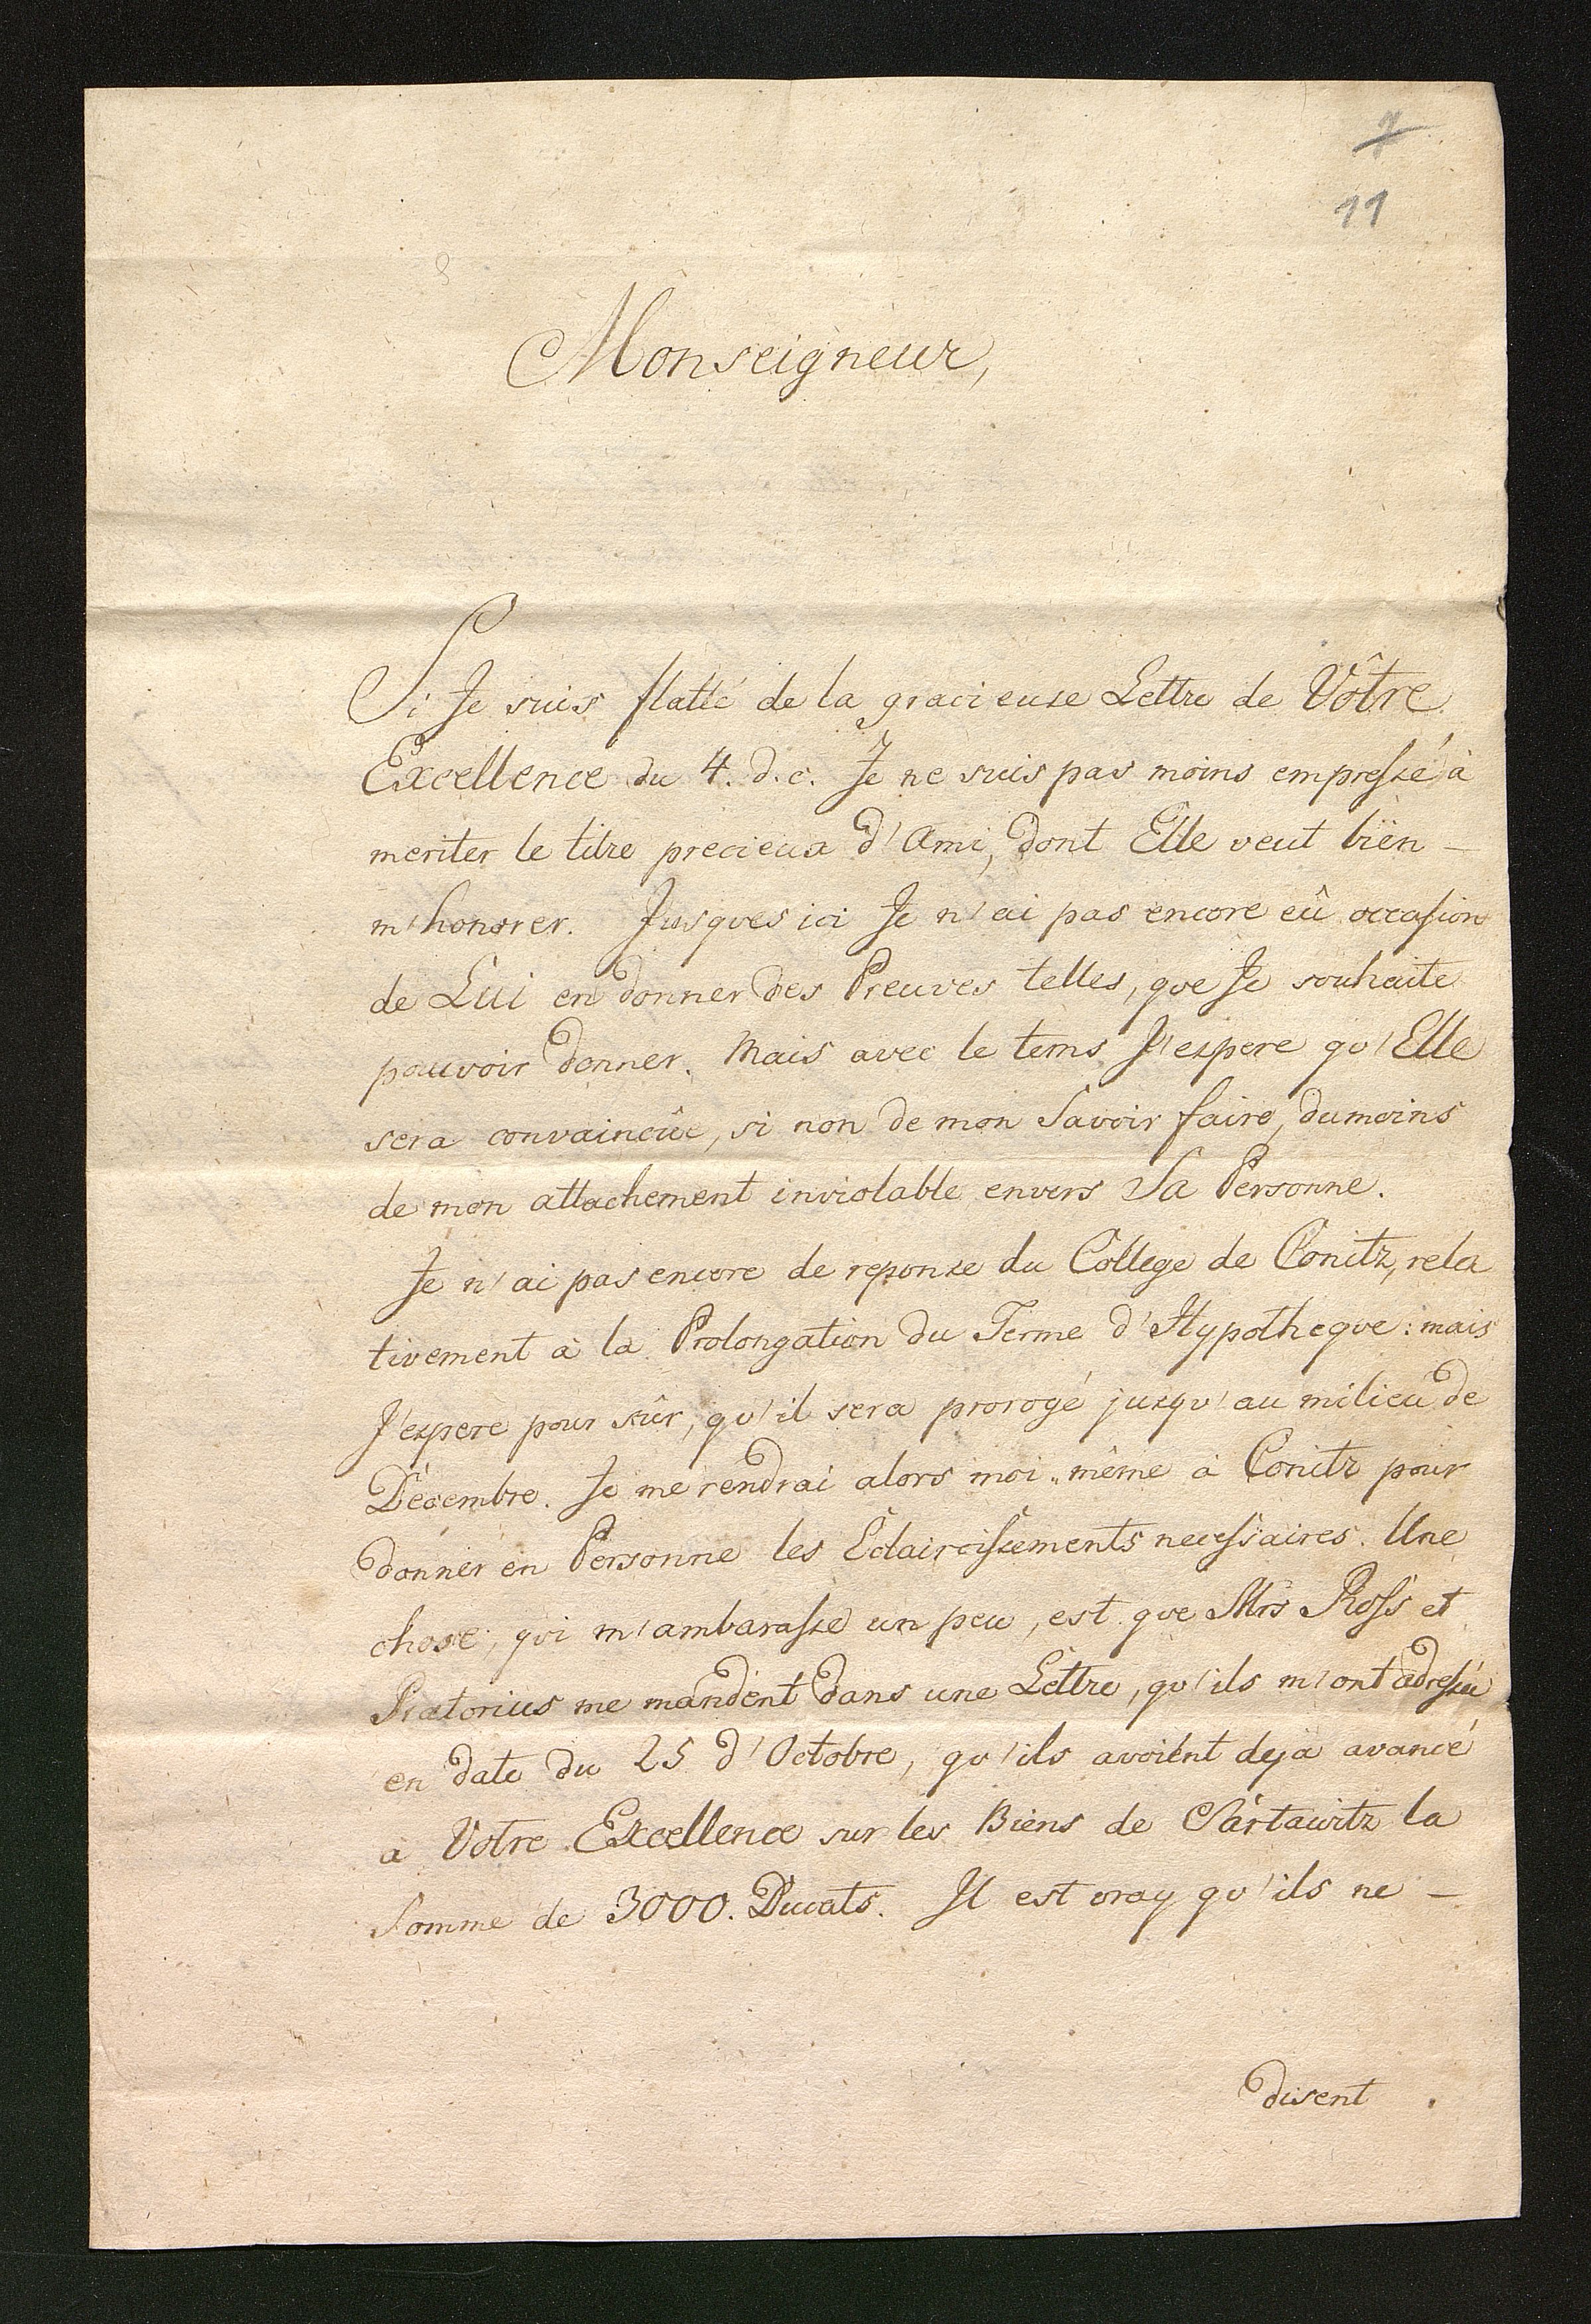 7
11
Monseigneur,
Si Je suis flatté de la gracieuse Lettre de Vôtre
Excellence du 4. d. c. Je ne suis pas moins empressé à
meriter le titre precieux d'Ami, dont Elle veut bien -
m'honorer. Jusques ici Je n'ai pas encore eû occasion
de Lui en donner des Preuves telles, que Je souhaite
pouvoir donner. Mais avec le tems J'espere qu'Elle
sera convaincûe, si non de mon Savoir faire, dumoins
de mon attachement inviolable envers Sa Personne.
Je n'ai pas encore de reponse du College de Conitz, rela
tivement à la Prolongation du Terme d'Hypotheque: mais
J'espere pour sûr, qu'il sera prorogé jusqu'au milieu de
Decembre. Je me rendrai alors moi-même à Conitz pour
donner en Personne les Eclaircissements necessaires. Une
chose, qui m'ambarasse un peu, est que Mrs Ross et
Pratorius me mandent dans une Lettre, qu'ils m'ont adressée
en date du 25 d'Octobre, qu'ils avoient deja avancé
à Votre Excellence sur les Biens de Sartawitz la
Somme de 3000. Ducats. Il est vray qu'ils ne -
disent